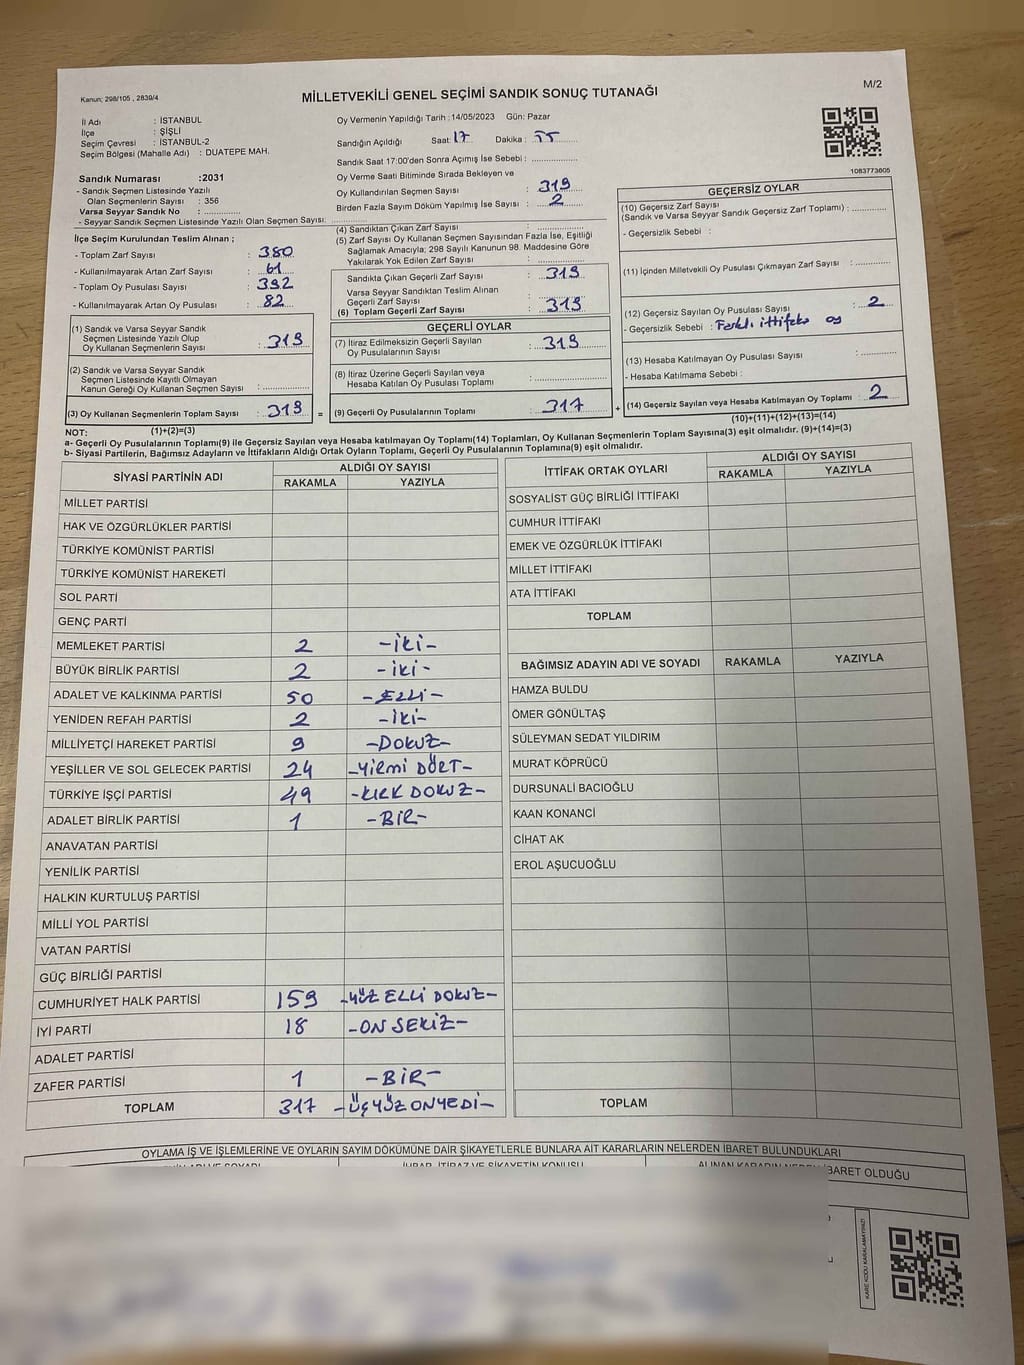 Kanun; 298/105 , 2839/4
MİLLETVEKİLİ GENEL SEÇİMİ SANDIK SONUÇ TUTANAĞI
M/2
İl Adı : İSTANBUL
İlçe : ŞİŞLİ
Seçim Çevresi : İSTANBUL-2
Seçim Bölgesi (Mahalle Adı) : DUATEPE MAH.
Oy Vermenin Yapıldığı Tarih : 14/05/2023 Gün: Pazar
Sandığın Açıldığı Saat: 17 Dakika :
Sandık Saat 17:00'den Sonra Açımış İse Sebebi :
Oy Verme Saati Bitiminde Sırada Bekleyen ve
Oy Kullandırılan Seçmen Sayısı : 319
Birden Fazla Sayım Döküm Yapılmış İse Sayısı : 2
1083773605
Sandık Numarası :2031
- Sandık Seçmen Listesinde Yazılı
Olan Seçmenlerin Sayısı : 356
Varsa Seyyar Sandık No :
- Seyyar Sandık Seçmen Listesinde Yazılı Olan Seçmen Sayısı:
İlçe Seçim Kurulundan Teslim Alınan ;
- Toplam Zarf Sayısı : 380
- Kullanılmayarak Artan Zarf Sayısı : 61
- Toplam Oy Pusulası Sayısı : 392
- Kullanılmayarak Artan Oy Pusulası : 82
(1) Sandık ve Varsa Seyyar Sandık
Seçmen Listesinde Yazılı Olup
Oy Kullanan Seçmenlerin Sayısı : 319
(2) Sandık ve Varsa Seyyar Sandık
Seçmen Listesinde Kayıtlı Olmayan
Kanun Gereği Oy Kullanan Seçmen Sayısı :
(3) Oy Kullanan Seçmenlerin Toplam Sayısı : 319 =
(4) Sandıktan Çıkan Zarf Sayısı :
(5) Zarf Sayısı Oy Kullanan Seçmen Sayısından Fazla İse, Eşitliği
Sağlamak Amacıyla; 298 Sayılı Kanunun 98. Maddesine Göre
Yakılarak Yok Edilen Zarf Sayısı :
Sandıkta Çıkan Geçerli Zarf Sayısı : 319
Varsa Seyyar Sandıktan Teslim Alınan
Geçerli Zarf Sayısı :
(6) Toplam Geçerli Zarf Sayısı : 319
GEÇERLİ OYLAR
(7) İtiraz Edilmeksizin Geçerli Sayılan
Oy Pusulalarının Sayısı : 319
(8) İtiraz Üzerine Geçerli Sayılan veya
Hesaba Katılan Oy Pusulası Toplamı :
(9) Geçerli Oy Pusulalarının Toplamı : 317 +
GEÇERSİZ OYLAR
(10) Geçersiz Zarf Sayısı
(Sandık ve Varsa Seyyar Sandık Geçersiz Zarf Toplamı) :
- Geçersizlik Sebebi :
(11) İçinden Milletvekili Oy Pusulası Çıkmayan Zarf Sayısı :
(12) Geçersiz Sayılan Oy Pusulası Sayısı : 2
- Geçersizlik Sebebi : Farklı ittifaka oy
(13) Hesaba Katılmayan Oy Pusulası Sayısı :
- Hesaba Katılmama Sebebi :
(14) Geçersiz Sayılan veya Hesaba Katılmayan Oy Toplamı : 2
NOT: (1)+(2)=(3)
(10)+(11)+(12)+(13)=(14)
a- Geçerli Oy Pusulalarının Toplamı(9) ile Geçersiz Sayılan veya Hesaba katılmayan Oy Toplamı(14) Toplamları, Oy Kullanan Seçmenlerin Toplam Sayısına(3) eşit olmalıdır. (9)+(14)=(3)
b- Siyasi Partilerin, Bağımsız Adayların ve İttifakların Aldığı Ortak Oyların Toplamı, Geçerli Oy Pusulalarının Toplamına(9) eşit olmalıdır.
SİYASİ PARTİNİN ADI ALDIĞI OY SAYISI
RAKAMLA YAZIYLA
MİLLET PARTİSİ
HAK VE ÖZGÜRLÜKLER PARTİSİ
TÜRKİYE KOMÜNİST PARTİSİ
TÜRKİYE KOMÜNİST HAREKETİ
SOL PARTİ
GENÇ PARTİ
MEMLEKET PARTİSİ 2 -İKİ-
BÜYÜK BİRLİK PARTİSİ 2 -İKİ-
ADALET VE KALKINMA PARTİSİ 50 -ELLİ-
YENİDEN REFAH PARTİSİ 2 -İKİ-
MİLLİYETÇİ HAREKET PARTİSİ 9 -DOKUZ-
YEŞİLLER VE SOL GELECEK PARTİSİ 24 -YİRMİ DÖRT-
TÜRKİYE İŞÇİ PARTİSİ 49 -KIRK DOKUZ-
ADALET BİRLİK PARTİSİ 1 -BİR-
ANAVATAN PARTİSİ
YENİLİK PARTİSİ
HALKIN KURTULUŞ PARTİSİ
MİLLİ YOL PARTİSİ
VATAN PARTİSİ
GÜÇ BİRLİĞİ PARTİSİ
CUMHURİYET HALK PARTİSİ 159 -YÜZ ELLİ DOKUZ-
İYİ PARTİ 18 -ON SEKİZ-
ADALET PARTİSİ
ZAFER PARTİSİ 1 -BİR-
TOPLAM 317 -ÜÇYÜZ ONYEDİ-
İTTİFAK ORTAK OYLARI ALDIĞI OY SAYISI
RAKAMLA YAZIYLA
SOSYALİST GÜÇ BİRLİĞİ İTTİFAKI
CUMHUR İTTİFAKI
EMEK VE ÖZGÜRLÜK İTTİFAKI
MİLLET İTTİFAKI
ATA İTTİFAKI
TOPLAM
BAĞIMSIZ ADAYIN ADI VE SOYADI RAKAMLA YAZIYLA
HAMZA BULDU
ÖMER GÖNÜLTAŞ
SÜLEYMAN SEDAT YILDIRIM
MURAT KÖPRÜCÜ
DURSUNALİ BACIOĞLU
KAAN KONANCİ
CİHAT AK
EROL AŞUCUOĞLU
TOPLAM
OYLAMA İŞ VE İŞLEMLERİNE VE OYLARIN SAYIM DÖKÜMÜNE DAİR ŞİKAYETLERLE BUNLARA AİT KARARLARIN NELERDEN İBARET BULUNDUKLARI
İHBAR, İTİRAZ VE ŞİKAYETİN KONUSU
ALINAN KARARIN NEDEN İBARET OLDUĞU
KARE KODU KARALAMAYINIZ!